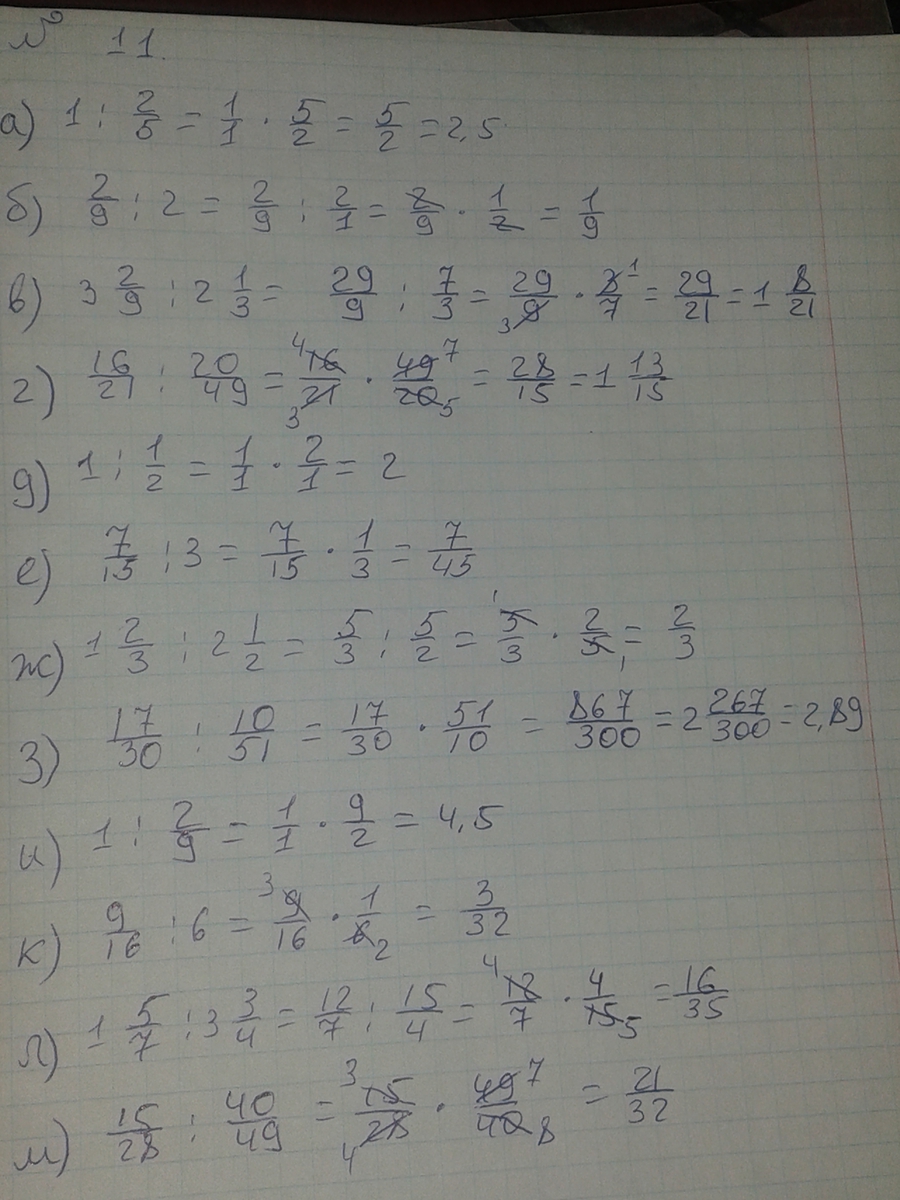 № 11.
а) 1 : 2/5 = 1/1 · 5/2 = 5/2 = 2,5
б) 2/9 : 2 = 2/9 : 2/1 = 2/9 · 1/2 = 1/9
в) 3 2/9 : 2 1/3 = 29/9 : 7/3 = 29/9 3 · 3/7 1 = 29/21 = 1 8/21
г) 16/21 : 20/49 = 4 16/21 3 · 49/20 7 5 = 28/15 = 1 13/15
д) 1 : 1/2 = 1/1 · 2/1 = 2
е) 7/15 : 3 = 7/15 · 1/3 = 7/45
ж) 1 2/3 : 2 1/2 = 5/3 : 5/2 = 1 5/3 · 2/5 1 = 2/3
з) 17/30 : 10/51 = 17/30 · 51/10 = 867/300 = 2 267/300 = 2,89
и) 1 : 2/9 = 1/1 · 9/2 = 4,5
к) 9/16 : 6 = 3 9/16 · 1/6 2 = 3/32
л) 1 5/7 : 3 3/4 = 12/7 : 15/4 = 4 12/7 · 4/15 5 = 16/35
м) 15/28 : 40/49 = 3 15/28 4 · 49/40 7 8 = 21/32